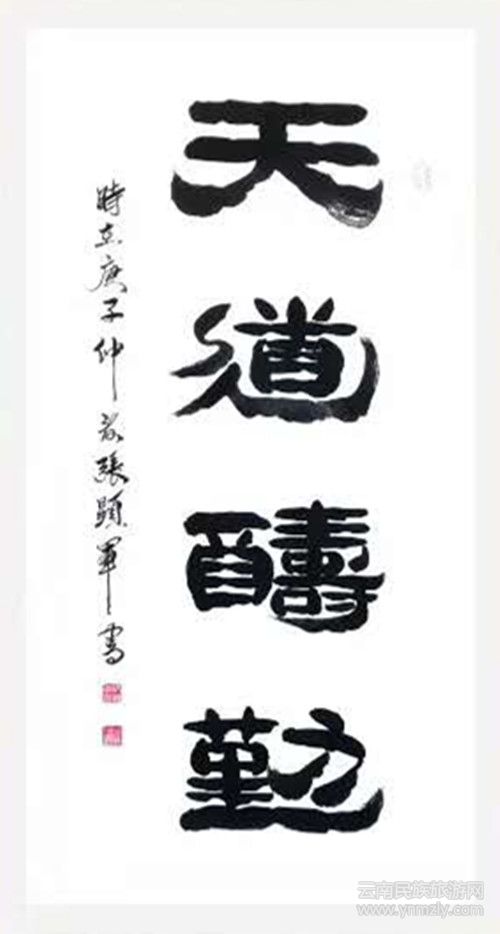 天道醻勤
時在庚子仲秋張顯軍書
云南民族旅游网
www.ynmzly.com